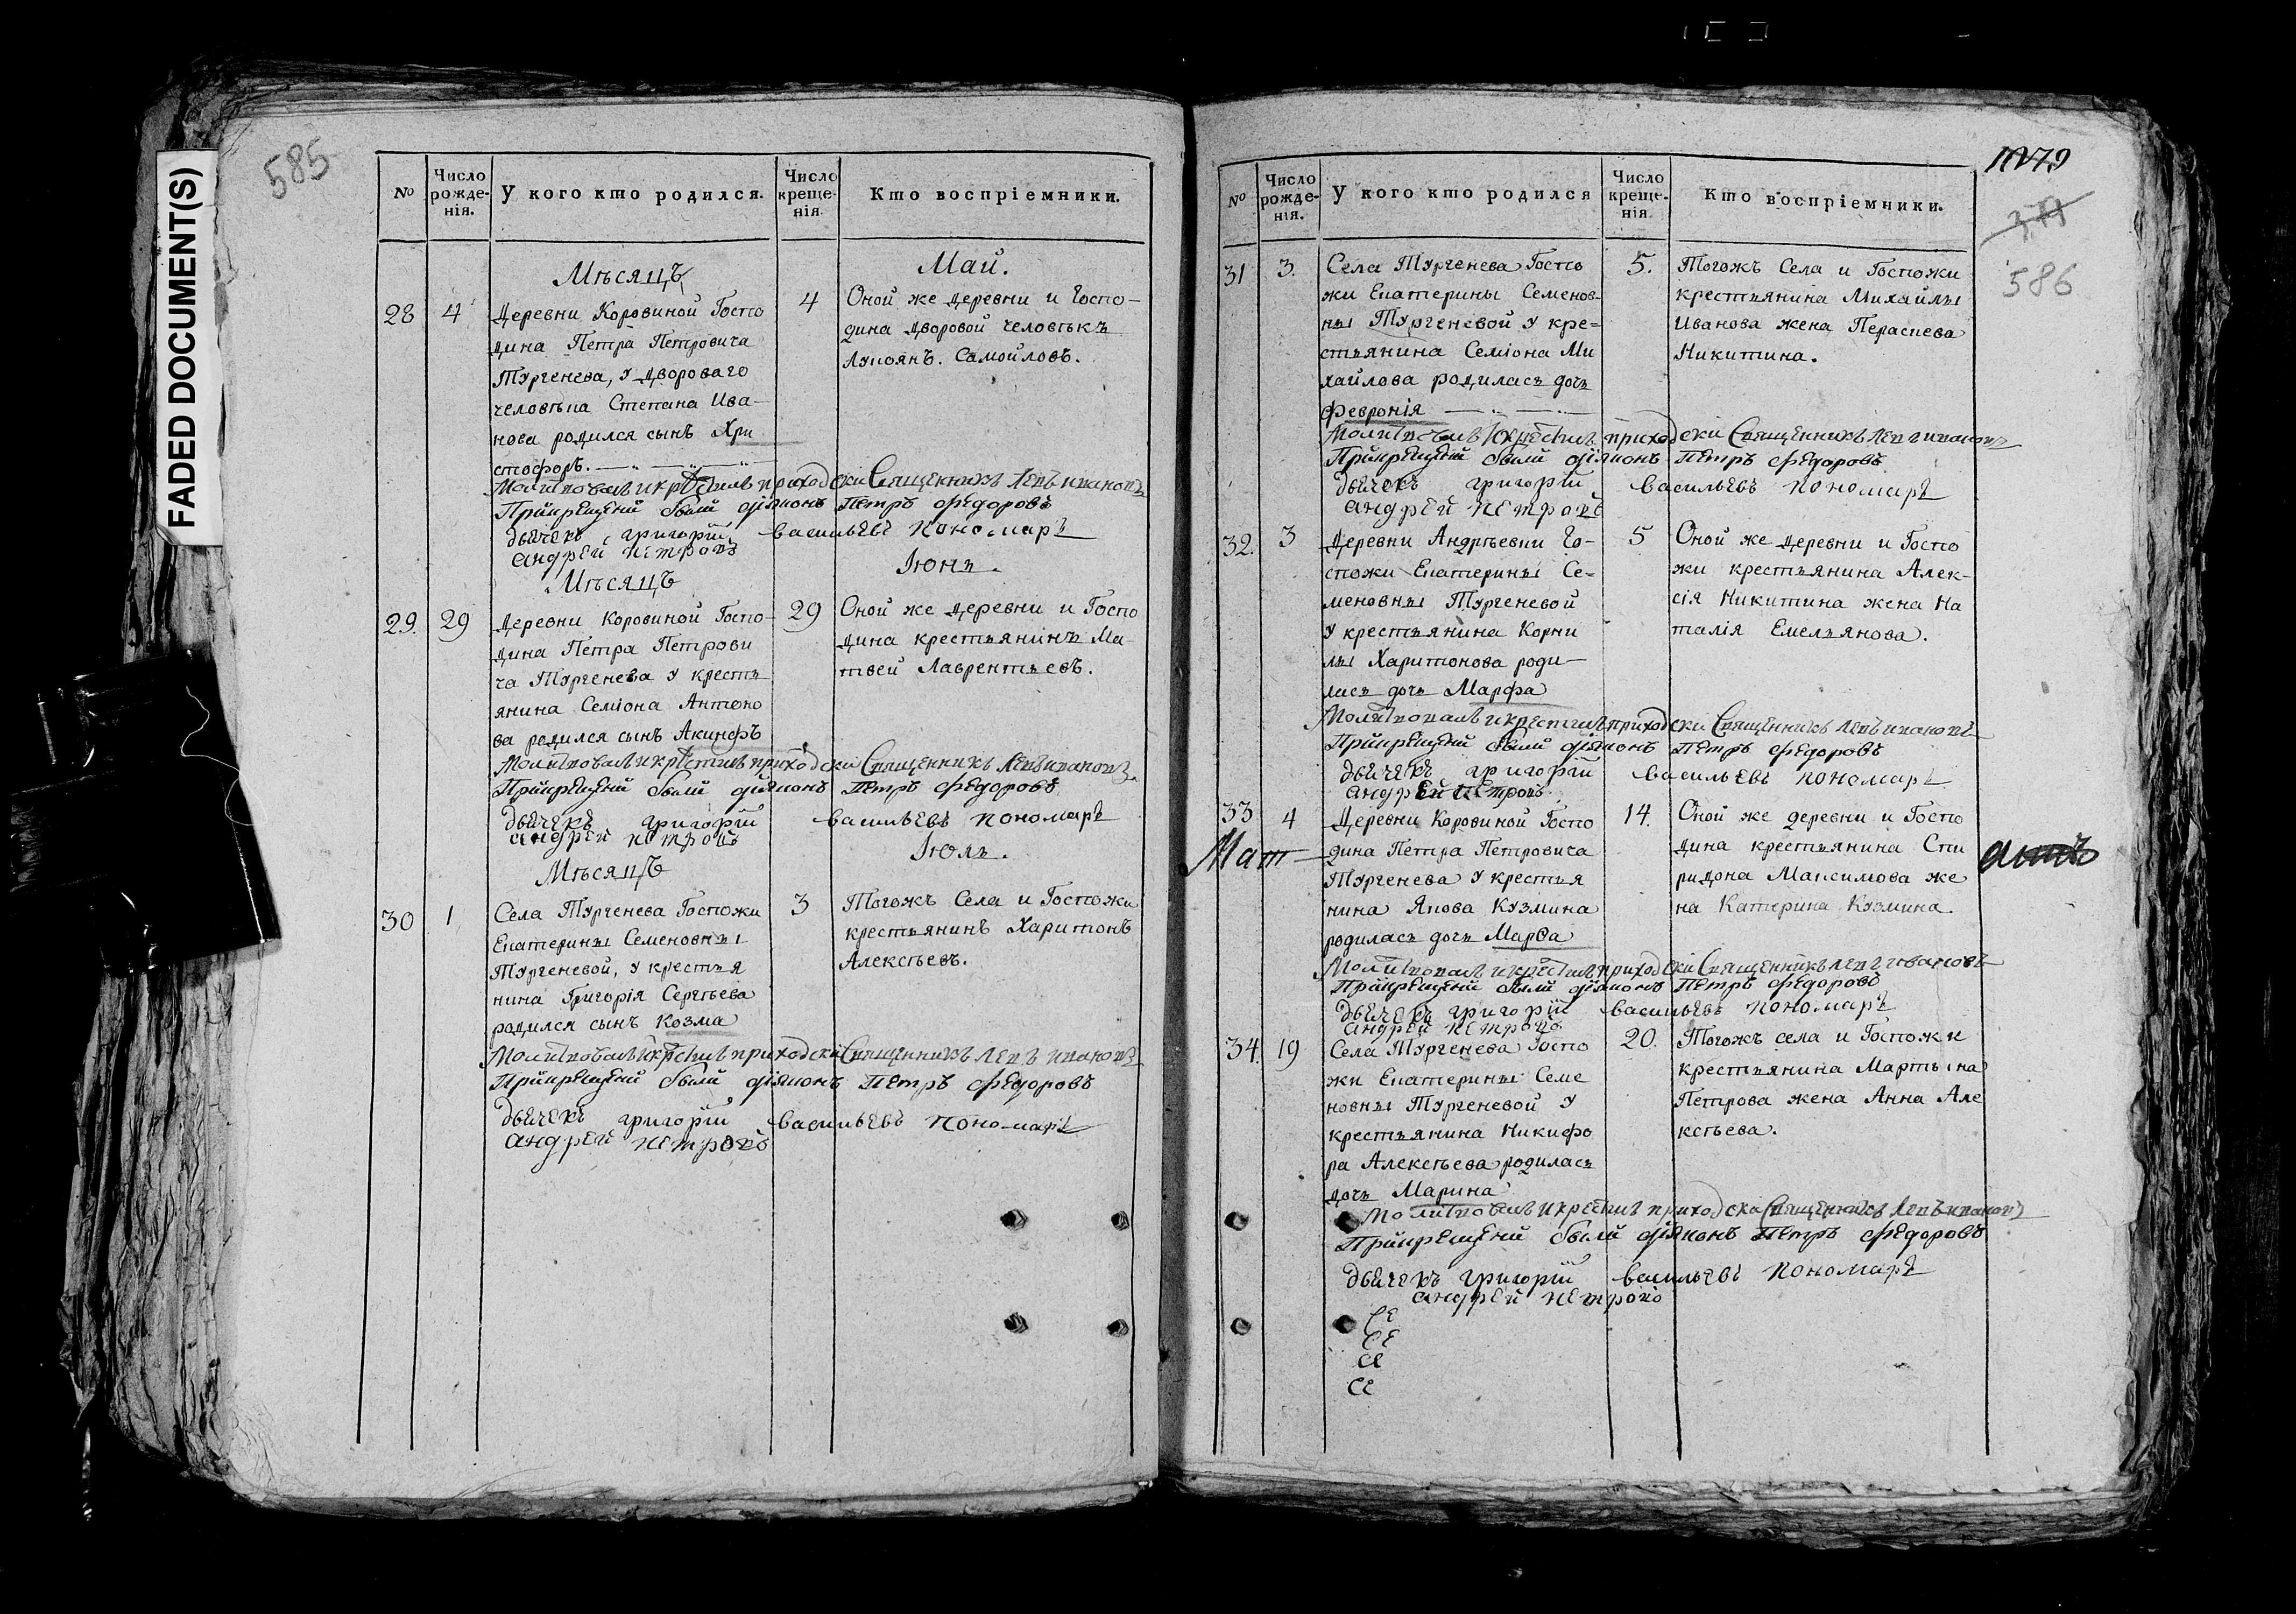 FADED DOCUMENT(S)
585
№
Число рожде-нія.
У кого кто родился.
Число креще-нія.
Кто воспріемники.
Мѣсяцъ
Май.
28
4
Деревни Коровиной Госпо
дина Петра Петровича
Тургенева, у двороваго
человѣка Степана Ива-
нова родился сынъ Хри
стофоръ.
4
Оной же деревни и Госпо-
дина дворовой человѣкъ
Лукоянъ. Самойловъ.
Молитвовалъ и крестилъ приходски Священникъ Левъ Ивановъ
Прикрещеніи были діяконъ Петръ Федоровъ
дьячекъ григорій васильевъ пономарь
андрей петровъ
Мѣсяцъ
Іюнь.
29.
29
Деревни Коровиной Госпо-
дина Петра Петрови
ча Тургенева у кресть
янина Семіона Антоно
ва родился сынъ Акинфъ
29
Оной же деревни и Госпо
дина крестьянинъ Ма-
твей Лаврентьевъ.
Молитвовалъ и крестилъ приходски Священникъ Левъ Ивановъ
Прикрещеніи были діяконъ Петръ Федоровъ
дьячекъ григорій васильевъ пономарь
андрей петровъ
Мѣсяцъ
Іюль.
30
1
Села Тургенева Госпожи
Екатерины Семеновны
Тургеневой, у крестья
нина Григорія Сергѣева
родился сынъ Козма
3
Тогожъ Села и Госпожи
крестьянинъ Харитонъ
Алексѣевъ.
Молитвовалъ и крестилъ приходски Священникъ Левъ Ивановъ
Прикрещеніи были діяконъ Петръ Федоровъ
дьячекъ григорій васильевъ пономарь
андрей петровъ
586
№
Число рожде-нія.
У кого кто родился
Число креще-нія.
Кто воспріемники.
31
3.
Села Тургенева Госпо
жи Екатерины Семенов-
ны Тургеневой у кре=
стьянина Семіона Ми
хайлова родилась дочь
Февронія
5.
Тогожъ Села и Госпожи
крестьянина Михайлы
Иванова жена Параскева
Никитина.
Молитвовалъ и крестилъ приходски Священникъ Левъ Ивановъ
Прикрещеніи были діяконъ Петръ Федоровъ
дьячекъ григорій васильевъ пономарь
андрей петровъ
32.
3
Деревни Андрѣевки Го-
спожи Екатерины Се=
меновны Тургеневой
у крестьянина Корни
лы Харитонова роди-
лась дочь Марфа
5
Оной же деревни и Госпо
жи крестьянина Алек-
сія Никитина жена На
талія Емельянова.
Молитвовалъ и крестилъ приходски Священникъ Левъ Ивановъ
Прикрещеніи были діяконъ Петръ Федоровъ
дьячекъ григорій васильевъ пономарь
андрей петровъ
33
4
Деревни Коровиной Госпо
дина Петра Петровича
Тургенева у крестья
нина Якова Кузмина
родилась дочь Марѳа
14.
Оной же деревни и Госпо
дина крестьянина Спи
ридона Максимова же
на Катерина Кузмина.
Мат
Молитвовалъ и крестилъ приходски Священникъ Левъ Ивановъ
Прикрещеніи были діяконъ Петръ Федоровъ
дьячекъ григорій васильевъ пономарь
андрей петровъ
34.
19
Села Тургенева Госпо
жи Екатерины Семе
новны Тургеневой у
крестьянина Никифо
ра Алексѣева родилась
дочь Марина
20.
Тогожъ села и Госпожи
крестьянина Мартына
Петрова жена Анна Але
ксѣева.
Молитвовалъ и крестилъ приходски Священникъ Левъ Ивановъ
Прикрещеніи были діяконъ Петръ Федоровъ
дьячекъ григорій васильевъ пономарь
андрей петровъ
СЕ
СЕ
СЕ
СЕ